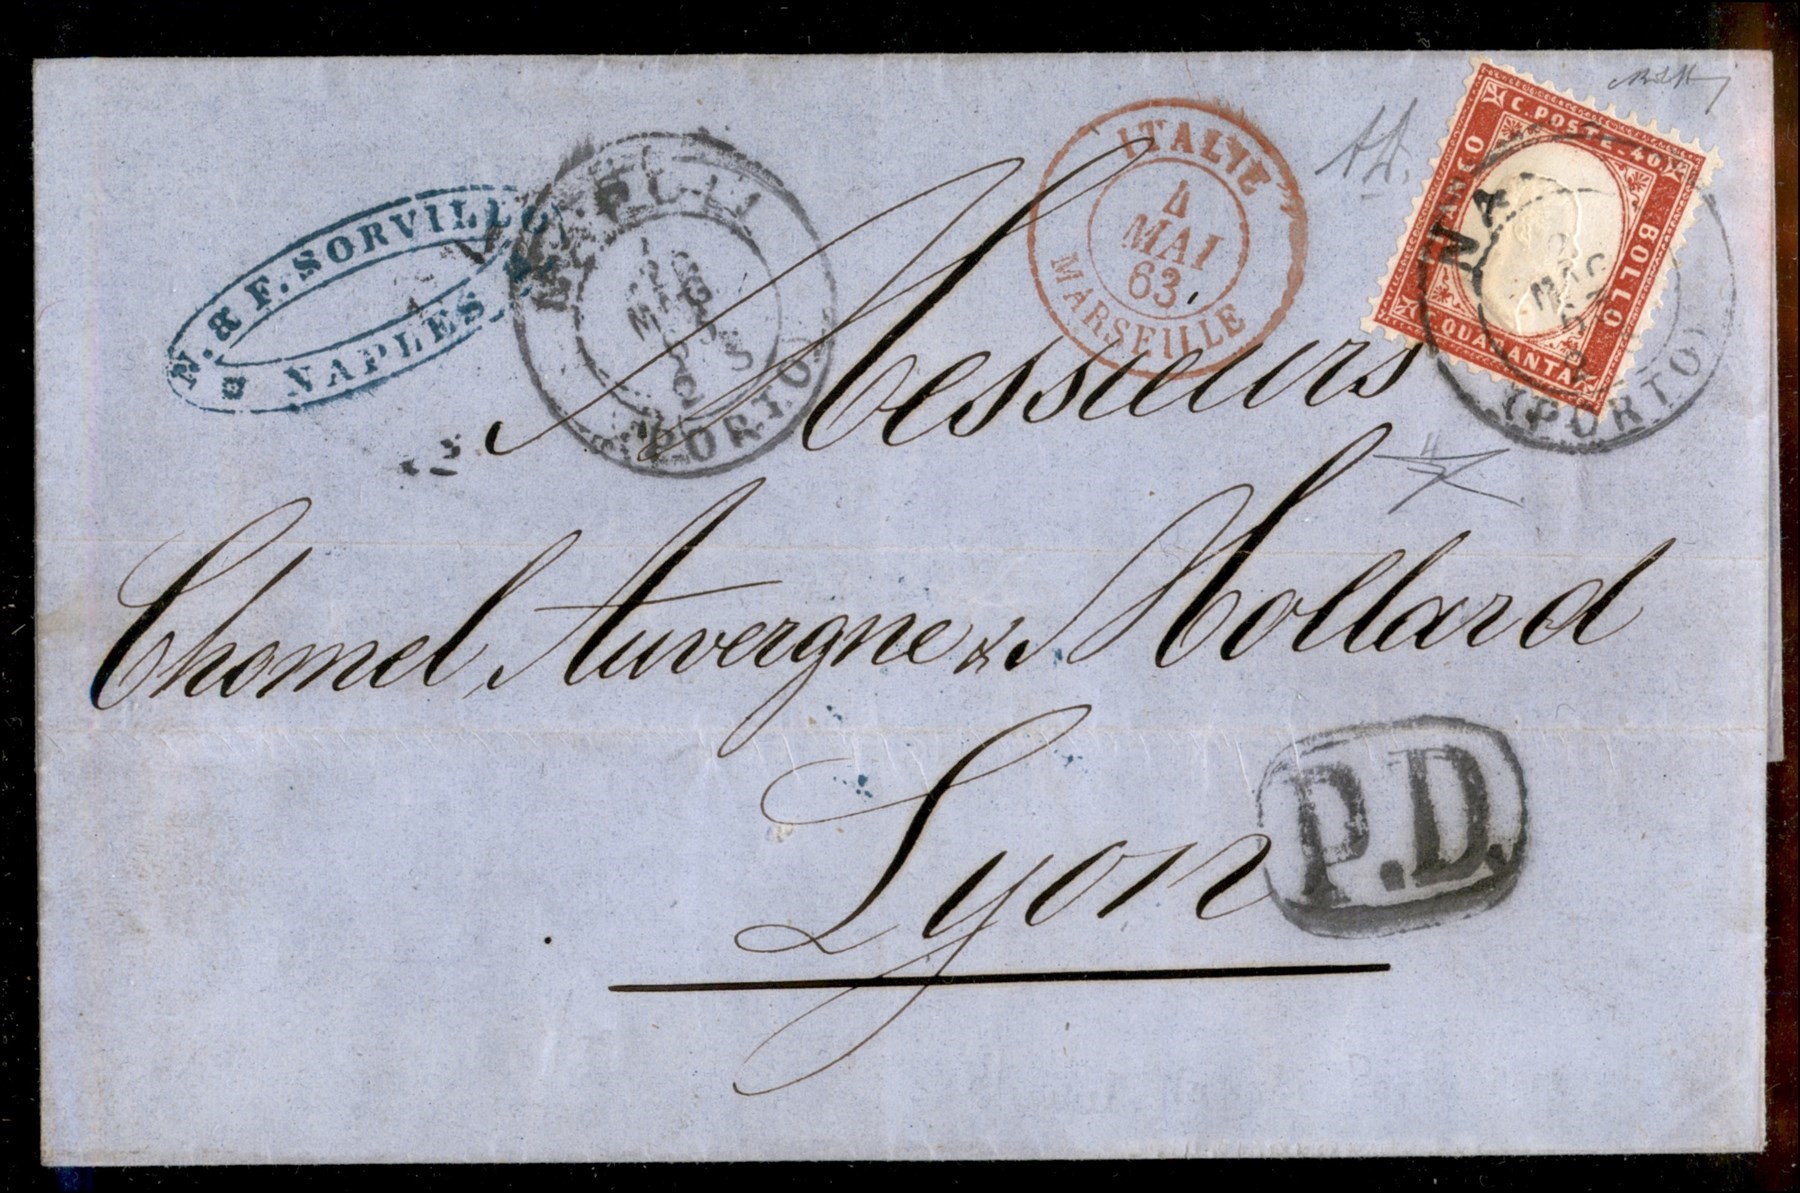 N. & F. SORVILLO
NAPLES
NAPOLI
(PORTO)
ITALIE
4
MAI
63
MARSEILLE
C. POSTE. 40
FRANCO
BOLLO
QUARANTA
NA
MAG
(PORTO)
Messieurs
Chomel, Auvergne & Hollard
Lyon
P.D.